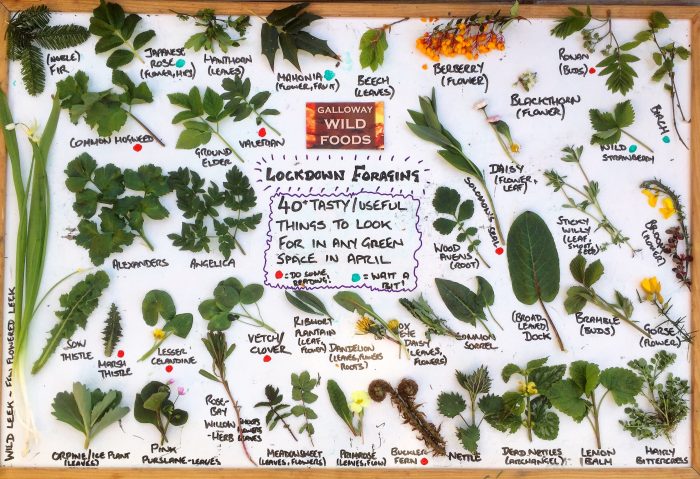 (NOBLE)
FIR
JAPANESE
ROSE
(FLOWER, HIPS)
HAWTHORN
(LEAVES)
MAHONIA
(FLOWER, FRUIT)
BEECH
(LEAVES)
BERBERRY
(FLOWER)
ROWAN
(BUDS)
BLACKTHORN
(FLOWER)
BIRCH
COMMON HOGWEED
GROUND
ELDER
VALERIAN
GALLOWAY
WILD
FOODS
DAISY
(FLOWER +
LEAF)
WILD
STRAWBERRY
LOCKDOWN FORAGING
40+ TASTY/USEFUL
THINGS TO LOOK
FOR IN ANY GREEN
SPACE IN APRIL
= DO SOME
READING!
= WAIT A
BIT!
ALEXANDERS
ANGELICA
WOOD
AVENS
(ROOT)
SOLOMON'S SEAL
STICKY
WILLY
(LEAF,
SHOOT,
SEED)
BROOM
(FLOWER)
WILD LEEK - FEW FLOWERED LEEK
SOW
THISTLE
MARSH
THISTLE
LESSER
CELANDINE
VETCH/
CLOVER
RIBWORT
PLANTAIN
(LEAF,
FLOWER)
DANDELION
(LEAVES, FLOWERS
+ ROOTS)
OX
EYE
DAISY
(LEAVES,
FLOWERS)
COMMON
SORREL
(BROAD
LEAVED)
DOCK
BRAMBLE
(BUDS)
GORSE
(FLOWER)
ORPINE/ICE PLANT
(LEAVES)
PINK
PURSLANE - LEAVES
ROSE-
BAY
WILLOW
-HERB
SHOOTS
FLOWERS
LEAVES
MEADOWSWEET
(LEAVES, FLOWERS)
PRIMROSE
(LEAVES, FLOW)
BUCKLER
FERN
NETTLE
DEAD NETTLES
(ARCHANGEL)
LEMON
BALM
HAIRY
BITTERCRESS